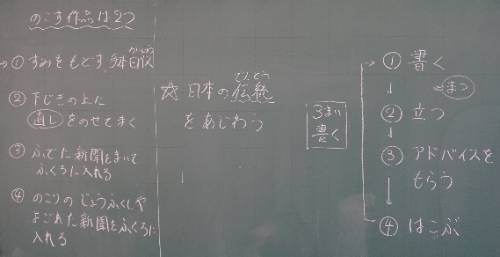 のこす作品は2つ
① すみをもどす
② 下じきの上に
直し をのせてまく
③ ふでに新聞をまいて
ふくろに入れる
④ のこりのじょうふくしや
よごれた新聞をふくろに
入れる
☆ 日本の伝統
でんとう
をあじわう
3まい
書く
① 書く
まつ
② 立つ
③ アドバイスを
もらう
④ はこぶ